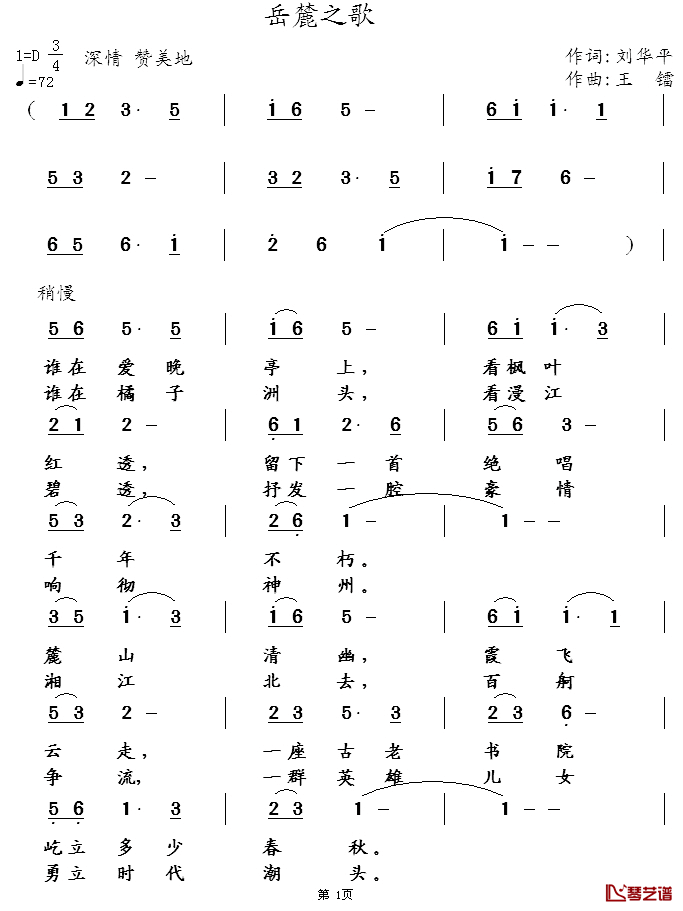 岳麓之歌
1=D 3/4 深情 赞美地 作词:刘华平
♩=72 作曲:王 镭
( 1 2 3· 5 | i 6 5 - | 6 i i· 1 |
5 3 2 - | 3 2 3· 5 | i 7 6 - |
6 5 6· i | 2̇ 6 i | i - - )
稍慢
5 6 5· 5 | i 6 5 - | 6 i i· 3 |
谁在 爱晚 亭 上, 看枫叶
谁在 橘子 洲 头, 看漫江
2 1 2 - | 6̣ 1 2· 6 | 5 6 3 - |
红 透, 留下一首 绝 唱
碧 透, 抒发一腔 豪 情
5 3 2· 3 | 2 6̣ 1 - | 1 - - |
千 年 不 朽。
响 彻 神 州。
3 5 i· 3 | i 6 5 - | 6 i i· 1 |
麓 山 清 幽, 霞 飞
湘 江 北 去, 百 舸
5 3 2 - | 2 3 5· 3 | 2 3 6̣ - |
云 走, 一座古老 书 院
争 流, 一群英雄 儿 女
5̣ 6̣ 1· 3 | 2 3 1 - | 1 - - |
屹立多少 春 秋。
勇立时代 潮 头。
第 1页
琴艺谱